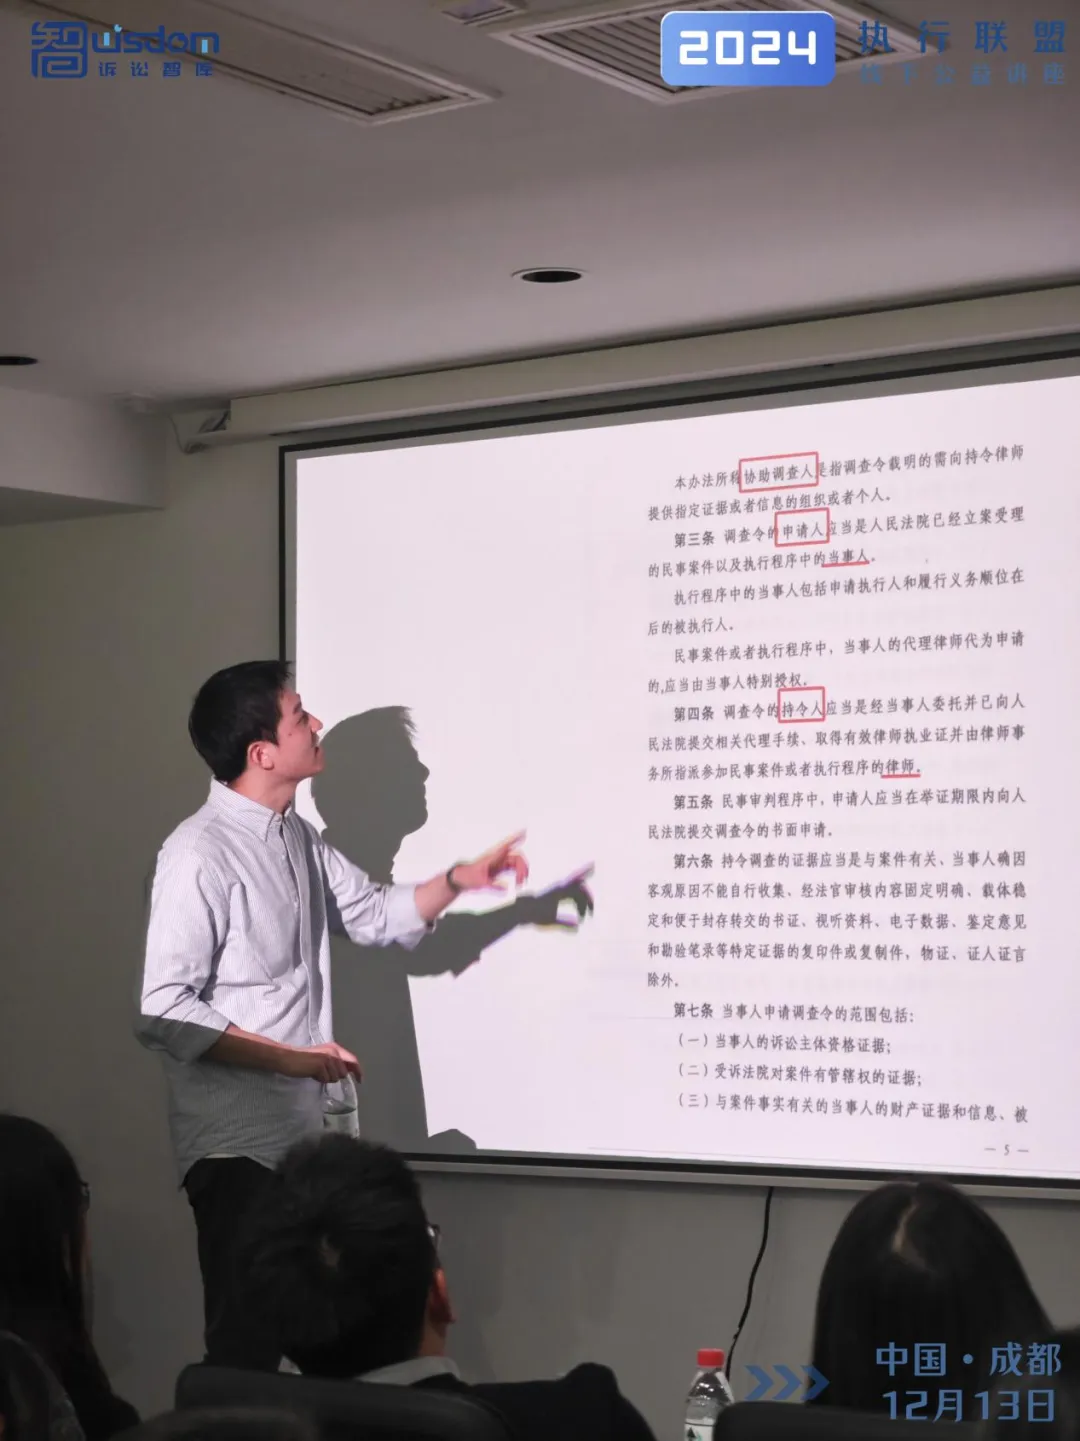 智
wisdom
诉讼智库
2024
执行联盟
线下公益讲座
本办法所称协助调查人是指调查令载明的需向持令律师
提供指定证据或者信息的组织或者个人。
第三条 调查令的申请人应当是人民法院已经立案受理
的民事案件以及执行程序中的当事人。
执行程序中的当事人包括申请执行人和履行义务顺位在
后的被执行人。
民事案件或者执行程序中，当事人的代理律师代为申请
的,应当由当事人特别授权。
第四条 调查令的持令人应当是经当事人委托并已向人
民法院提交相关代理手续、取得有效律师执业证并由律师事
务所指派参加民事案件或者执行程序的律师。
第五条 民事审判程序中，申请人应当在举证期限内向人
民法院提交调查令的书面申请。
第六条 持令调查的证据应当是与案件有关、当事人确因
客观原因不能自行收集、经法官审核内容固定明确、载体稳
定和便于封存转交的书证、视听资料、电子数据、鉴定意见
和勘验笔录等特定证据的复印件或复制件，物证、证人证言
除外。
第七条 当事人申请调查令的范围包括：
（一）当事人的诉讼主体资格证据；
（二）受诉法院对案件有管辖权的证据；
（三）与案件事实有关的当事人的财产证据和信息、被
— 5 —
中国·成都
12月13日